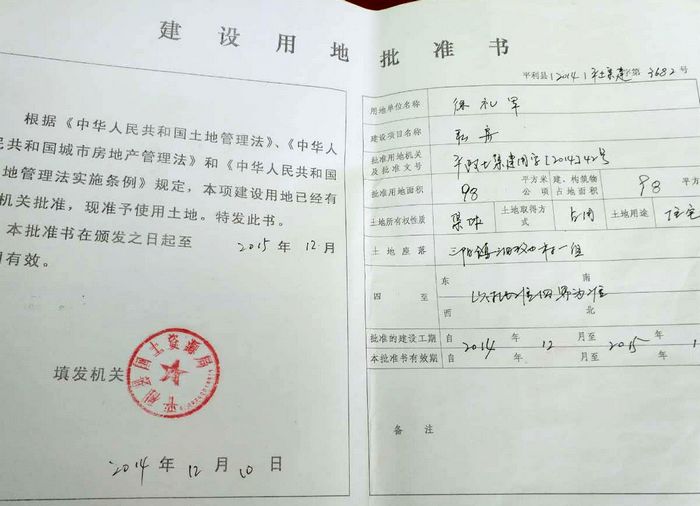 建设用地批准书
根据《中华人民共和国土地管理法》、《中华人
民共和国城市房地产管理法》和《中华人民共和国
地管理法实施条例》规定，本项建设用地已经有
机关批准，现准予使用土地。特发此书。
本批准书在颁发之日起至 2015 年 12 月
有效。
填发机关
平利县国土资源局
2014 年 12 月 10 日
平利县[2014]平土集建字第3682号
用地单位名称 徐礼军
建设项目名称
批准用地机关及批准文号 平政土集建用字[2014]42号
批准用地面积 98 平方米 公顷 建、构筑物占地面积 98 平方
土地所有权性质 集体 土地取得方式 占用 土地用途 住宅
土地座落 三阳镇 村一组
四至 东 南 西 北
以批准四界为准
批准的建设工期 自 2014 年 12 月至 2015 年 1
本批准书有效期 自 年 月至 年
备注